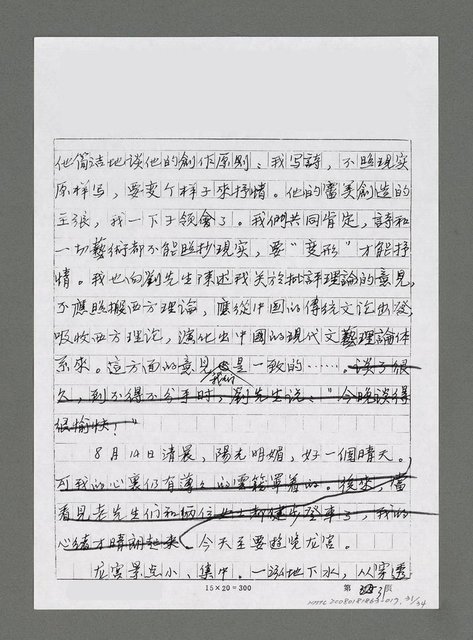 他简洁地谈他的創作原则：我写詩，不照现实
原样写，要变个样子來抒情。他的審美創造的
主张，我一下子領會了。我們共同肯定，詩和
一切藝術都不能照抄现实，要"变形"才能抒
情。我也向劉先生陳述我关於批評理論的意見，
不應照搬西方理論，應從中國的傳統文论出發，
吸收西方理论，演化出中國的現代文藝理論体
系來。這方面的意見我們是一致的……。谈了很
久，到不得不分手時，劉先生说："今晚谈得
很愉快！"
8月14日清晨，陽光明媚，好一個晴天。
可我的心裏仍有薄薄的雲翳罩着的。後來，當
看見老先生們和兩位女士都健步登車了，我的
心緒才晴朗起來。今天主要遊覽龙宫。
龙宫景点小、集中。一泓地下水，从穿透
15×20=300
第 31 張
31/34